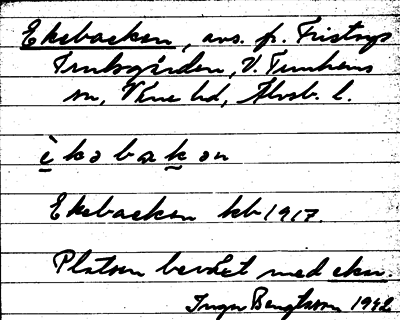 Eksbacken, avs. fr. Fristorp
Trulsgården, V. Tunhems
sn, Väne hd, Älvsb. l.
è̱ k ə b a k̬ ə n
Eksbacken kb 1917.
Platsen bevåxt med ekar.
Inga Bengtsson 1942